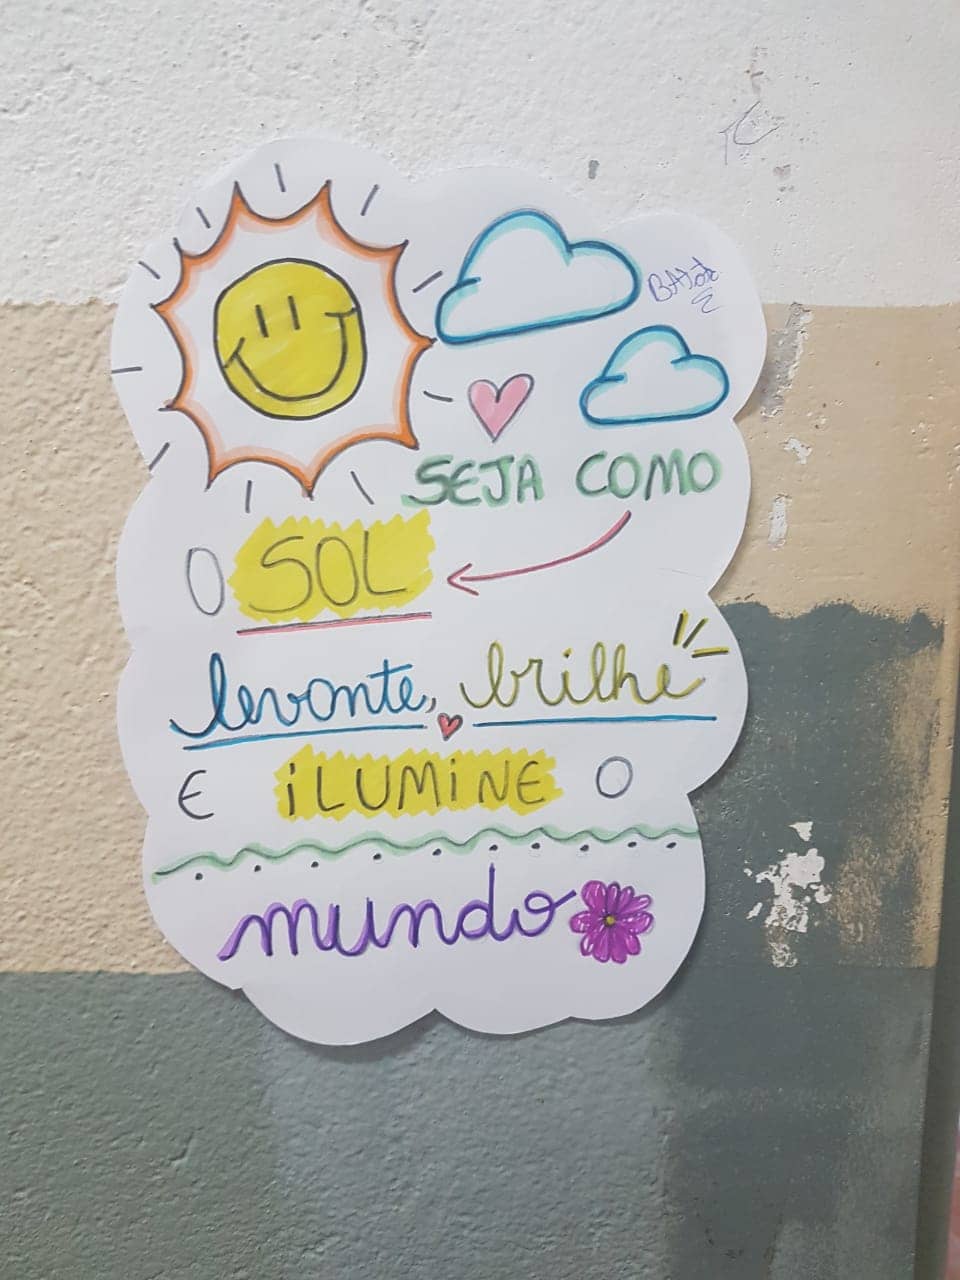 SEJA COMO
O SOL
levante, brilhe
E iLUMiNE O
mundo